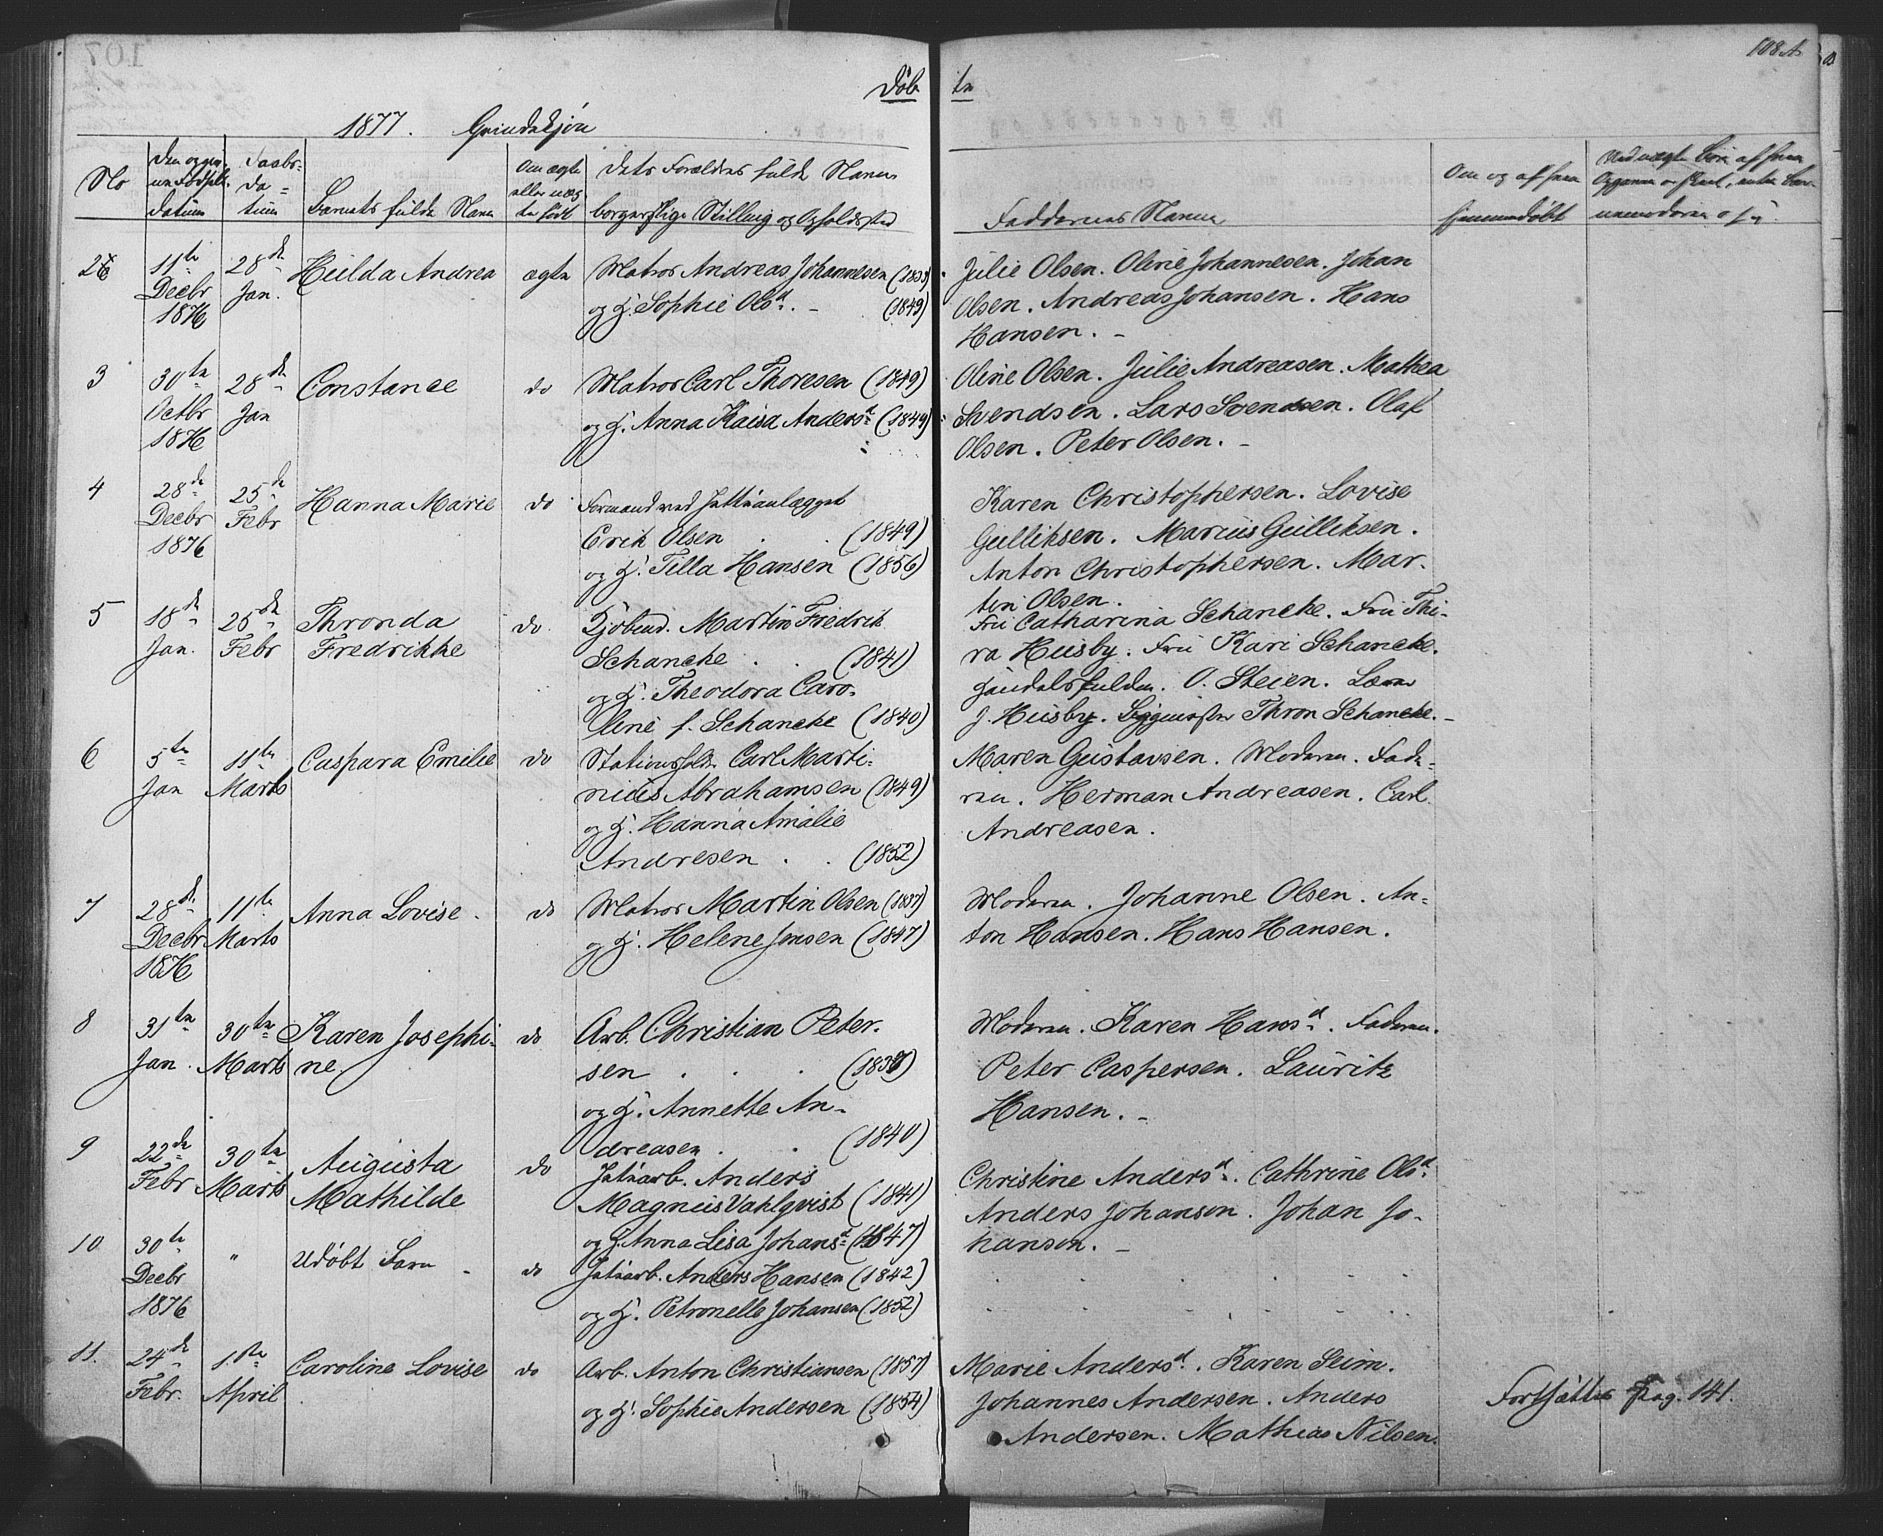 108 A.
Døb
te
1877. Qvindekjøn
No
Den og ger-
ne Fødsels-
datum
Daabs-
da-
tum
Barnets fulde Navn
Om ægte
eller uæg-
te født
Dets Forældres fulde Navn
borgerlige Stilling og Opholdssted
Faddernes Navne
Om og af hvem
hjemmedøbt
2
11te
Decbr
1876
28de
Jan.
Hulda Andrea
ægte
Matros Andreas Johannesen
og H. Sophie Olsd. (1849)
Julie Olsen. Oline Johannesen. Johan
Olsen. Andreas Johansen. Hans
Hansen.
3
30te
Octbr
1876
28de
Jan
Constance
do
Matros Carl Thoresen (1849)
og H. Anna Kaisa Andersd (1844)
Oline Olsen. Julie Andreasen. Mathea
Svendsen. Lars Svendsen. Olaf
Olsen. Peter Olsen.
4
28de
Decbr
1876
25de
Febr
Hanna Marie
do
Formand ved
Erik Olsen (1849)
og H. Tilla Hansen (1856)
Karen Christophersen. Lovise
Gulliksen. Marius Gulliksen.
Anton Christophersen. Mar-
tin Olsen.
5
18de
Jan.
25de
Febr
Thronda
Fredrikke
do
Kjøbmd. Martin Fredrik
Schancke (1841)
og H. Theodora Caro-
line f. Schancke (1840)
Fru Catharina Schancke. Fru Thi-
ra Husby. Fru Kari Schancke.
Handelsfuldm. O. Steien. Lærer
J. Husby. Byggmester Thron Schancke.
6
5te
Jan
11te
Marts
Caspara Emilie
do
Stationsfold Carl Marti-
nius Abrahamsen (1849)
og H. Hanna Amalie
Andresen (1852)
Maren Gustavsen. Moderen. Fade-
ren. Herman Andreasen. Carl
Andreasen.
7
28de
Decbr
1876
11te
Marts
Anna Lovise.
do
Matros Martin Olsen (1837)
og H. Helene Jensen (1847)
Moderen. Johanne Olsen. An-
ton Hansen. Hans Hansen.
8
31te
Jan.
30te
Marts
Karen Josephi-
ne.
do
Arb. Christian Peter-
sen
og H. Annette An-
dreasen. (1840)
Moderen. Karen Hansd. Faderen.
Peter Caspersen. Lauritz
Hansen.
9
22de
Febr
30te
Marts
Augusta
Mathilde
do
Jutearb. Anders
Magnus Vahlqvist (1841)
og H. Anna Lisa Johansd (1847)
Christine Andersd. Cathrine Olsd.
Anders Johanson. Johan Jo-
hanson.
10
30te
Decbr
1876
"
Udøbt Barn
do
Jutearb. Anders Hansen (1842)
og H. Petronelle Johansen (1852)
11.
24de
Febr.
1ste
April
Caroline Lovise
do
Arb. Anton Christiansen (1857)
og H. Sophie Andersen (1854)
Marie Andersd. Karen Seim.
Johannes Andersen. Anders
Andersen. Mathias Nilsen.
Fortsættes Pag. 141.